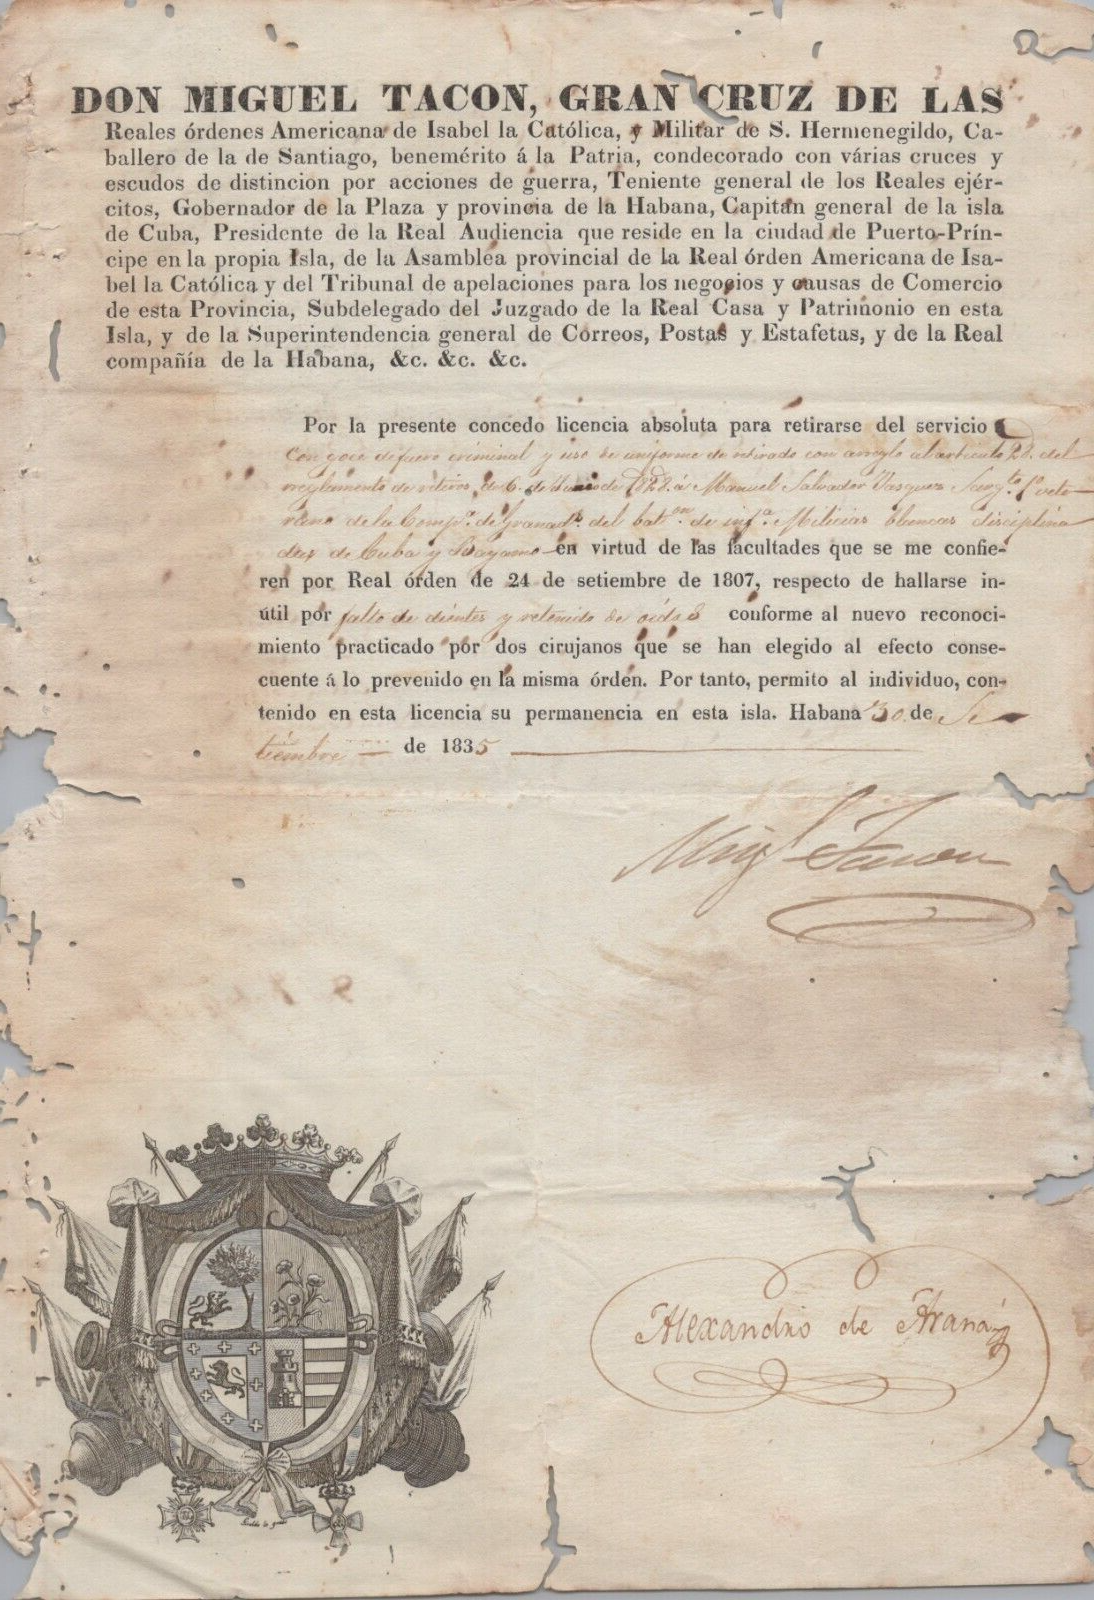 DON MIGUEL TACON, GRAN CRUZ DE LAS
Reales órdenes Americana de Isabel la Católica, y Militar de S. Hermenegildo, Ca-
ballero de la de Santiago, benemérito á la Patria, condecorado con várias cruces y
escudos de distincion por acciones de guerra, Teniente general de los Reales ejér-
citos, Gobernador de la Plaza y provincia de la Habana, Capitan general de la isla
de Cuba, Presidente de la Real Audiencia que reside en la ciudad de Puerto-Prín-
cipe en la propia Isla, de la Asamblea provincial de la Real órden Americana de Isa-
bel la Católica y del Tribunal de apelaciones para los negocios y causas de Comercio
de esta Provincia, Subdelegado del Juzgado de la Real Casa y Patrimonio en esta
Isla, y de la Superintendencia general de Correos, Postas y Estafetas, y de la Real
compañía de la Habana, &c. &c. &c.
Por la presente concedo licencia absoluta para retirarse del servicio
con goce de fuero criminal y uso de uniforme de retirado con arreglo al artículo 28. del
reglamento de retiros, de 6. de Junio de 1828. á Manuel Salvador Vasquez Sarg.to 1.o vete-
rano de la Comp.a de Granad.s del bat.on de inf.a Milicias blancas disciplina
das de Cuba y Bayamo en virtud de las facultades que se me confie-
ren por Real órden de 24 de setiembre de 1807, respecto de hallarse in-
útil por falto de dientes y retenido de oidos conforme al nuevo reconoci-
miento practicado por dos cirujanos que se han elegido al efecto conse-
cuente á lo prevenido en la misma órden. Por tanto, permito al individuo, con-
tenido en esta licencia su permanencia en esta isla. Habana 30. de Se-
tiembre de 1835
Mig.l Tacon
Alexandro de Arana